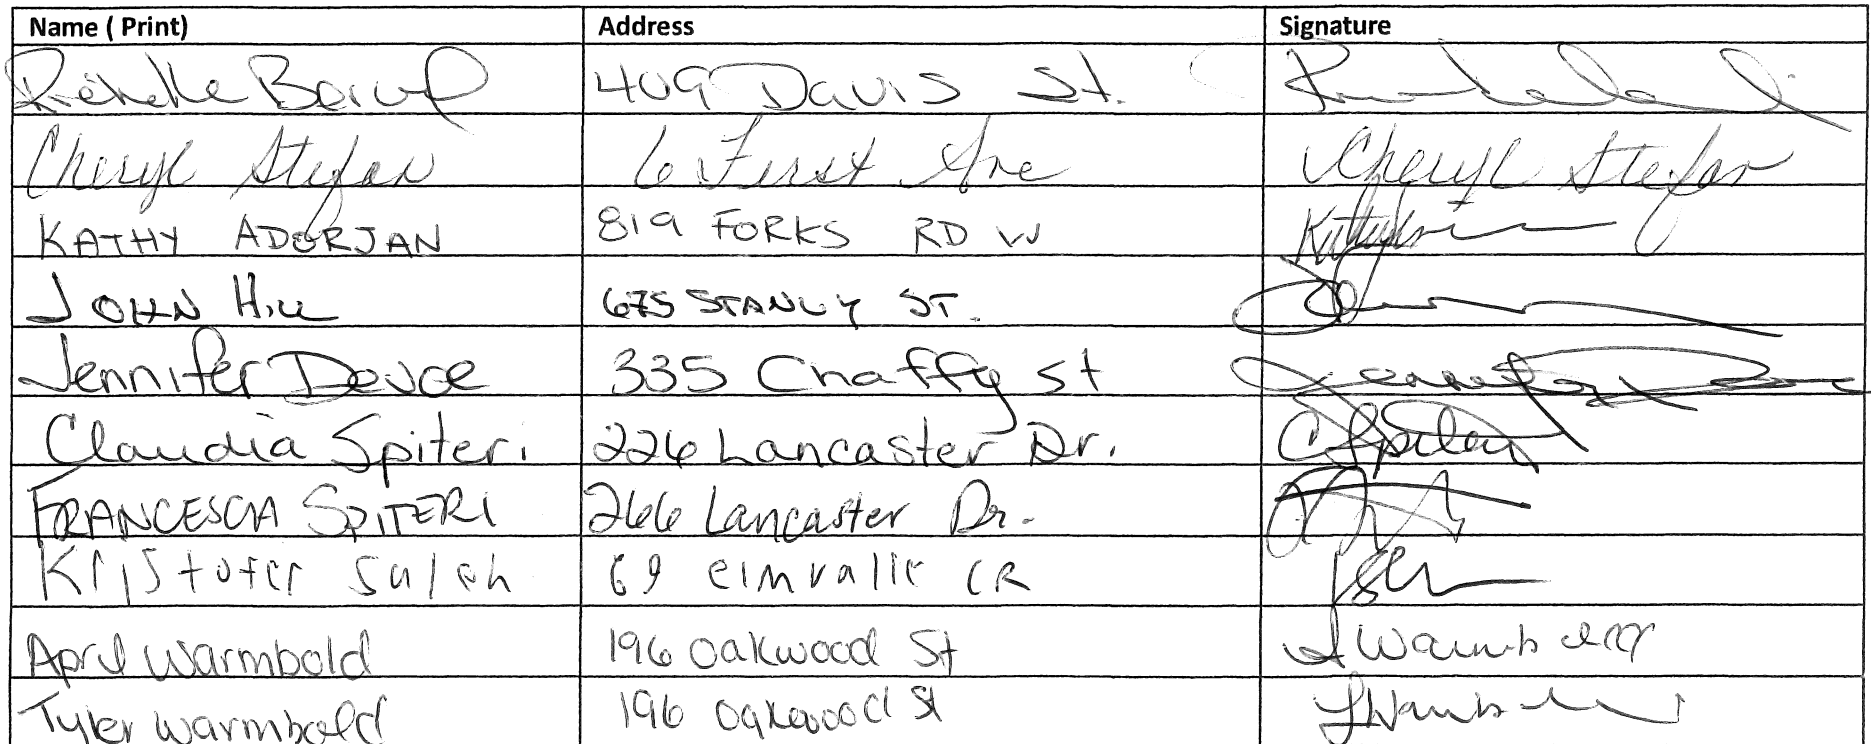 Name ( Print) Address Signature
Richelle 409 Davis St.
Cheryl Stefan 6 First Ave Cheryl Stefan
KATHY ADORJAN 819 FORKS RD W
JOHN HILL 675 STANLY ST.
Jennifer Devoe 335 Chaffy st
Claudia Spiteri 226 Lancaster Dr. C Spiteri
FRANCESCA SPITERI 266 Lancaster Dr.
Kristofer Saleh 69 elmvalle CR
April Warmbold 196 Oakwood St A Warmbold
Tyler Warmbold 196 Oakwood St